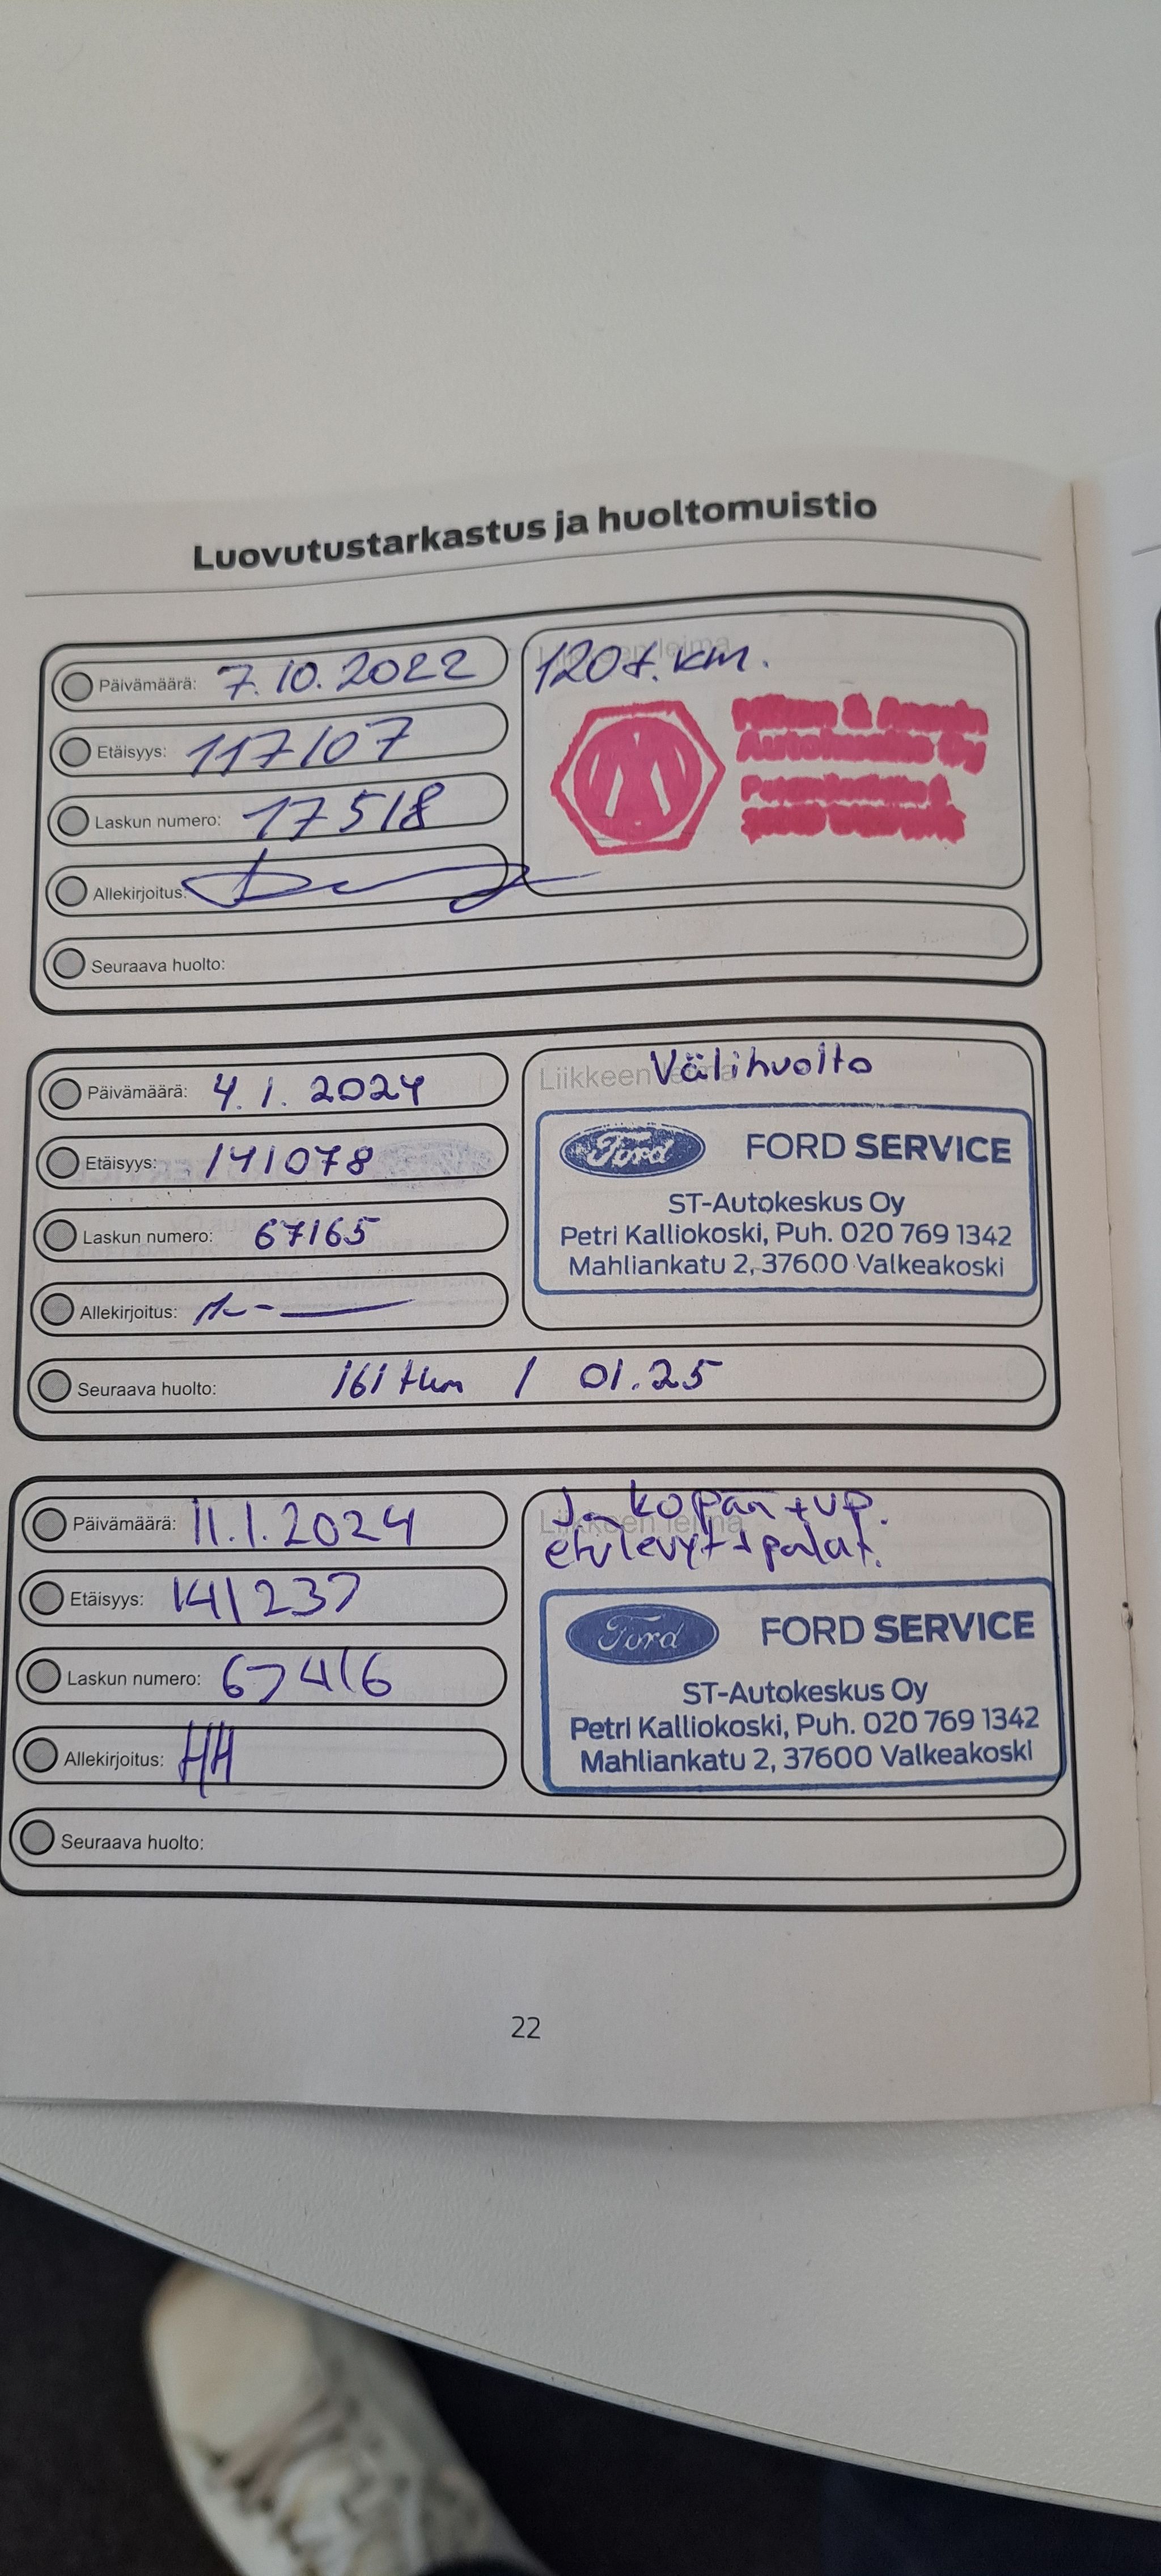 Luovutustarkastus ja huoltomuistio
Päivämäärä: 7.10.2022
Etäisyys: 117107
Laskun numero: 17518
Allekirjoitus:
Seuraava huolto:
Liikkeen leima
120 t. km.
Oy
Päivämäärä: 4.1.2024
Etäisyys: 141078
Laskun numero: 67165
Allekirjoitus:
Seuraava huolto: 161 tkm / 01.25
Liikkeen leima
Välihuolto
Ford FORD SERVICE
ST-Autokeskus Oy
Petri Kalliokoski, Puh. 020 769 1342
Mahliankatu 2, 37600 Valkeakoski
Päivämäärä: 11.1.2024
Etäisyys: 141237
Laskun numero: 67416
Allekirjoitus: HH
Seuraava huolto:
Liikkeen leima
kopan + vp.
etulevyt + palat.
Ford FORD SERVICE
ST-Autokeskus Oy
Petri Kalliokoski, Puh. 020 769 1342
Mahliankatu 2, 37600 Valkeakoski
22